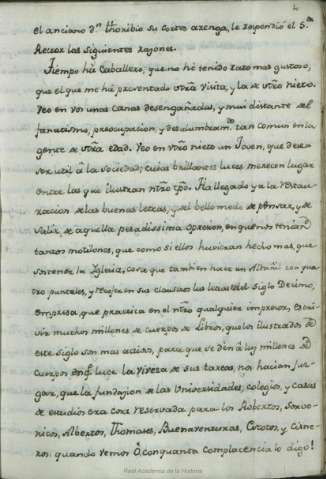 4
el anciano Dn. thoribio su corta arenga, le respondió el Sor.
Rector las siguientes razones.
Tiempo há Caballero, que no hé tenido rato mas gustoso,
que el que me há presentado vtra. visita, y la de vtro. nieto.
Veo en vos unas canas desengañadas, y mui distante del
fanatismo, preocupacion, y deslumbram.to tan comun en la
gente de vtra. edad. Veo en vtro. nieto un Joven, que dese-
ser util á la Sociedad; cuias brillantes luces merecen lugar
entre las que ilustran ntro. tpo. Ha llegado ya la restau-
racion de las buenas letras, y del bello modo de pensar, y de
salir de aquella pesadissima opresion, en que nos tenian
tantos motilones, que como si ellos huvieran hecho mas, que
sostener la Iglesia, cosa que tambien hace un Albañil con qua-
tro puntales, y recoger en sus clausuras las luces del siglo Decimo,
empresa, que practica en el ntro. qualquier impresor, Escri-
vir muchos millones de cuerpos de libros, que los ilustrados de
este siglo son mas activos, para que se dén á luz millones de
cuerpos en que luce la viveza de sus tareas, nos hacian juz-
gar, que la fundazion de las Universidades, colegios, y casas
de estudios era cosa reservada para los Robertos,
Albertos, Thomases, Buenaventuras, Escotos, y Cisne-
ros: quando vemos ô, con quanta complacencia lo digo!
Real Academia de la Historia